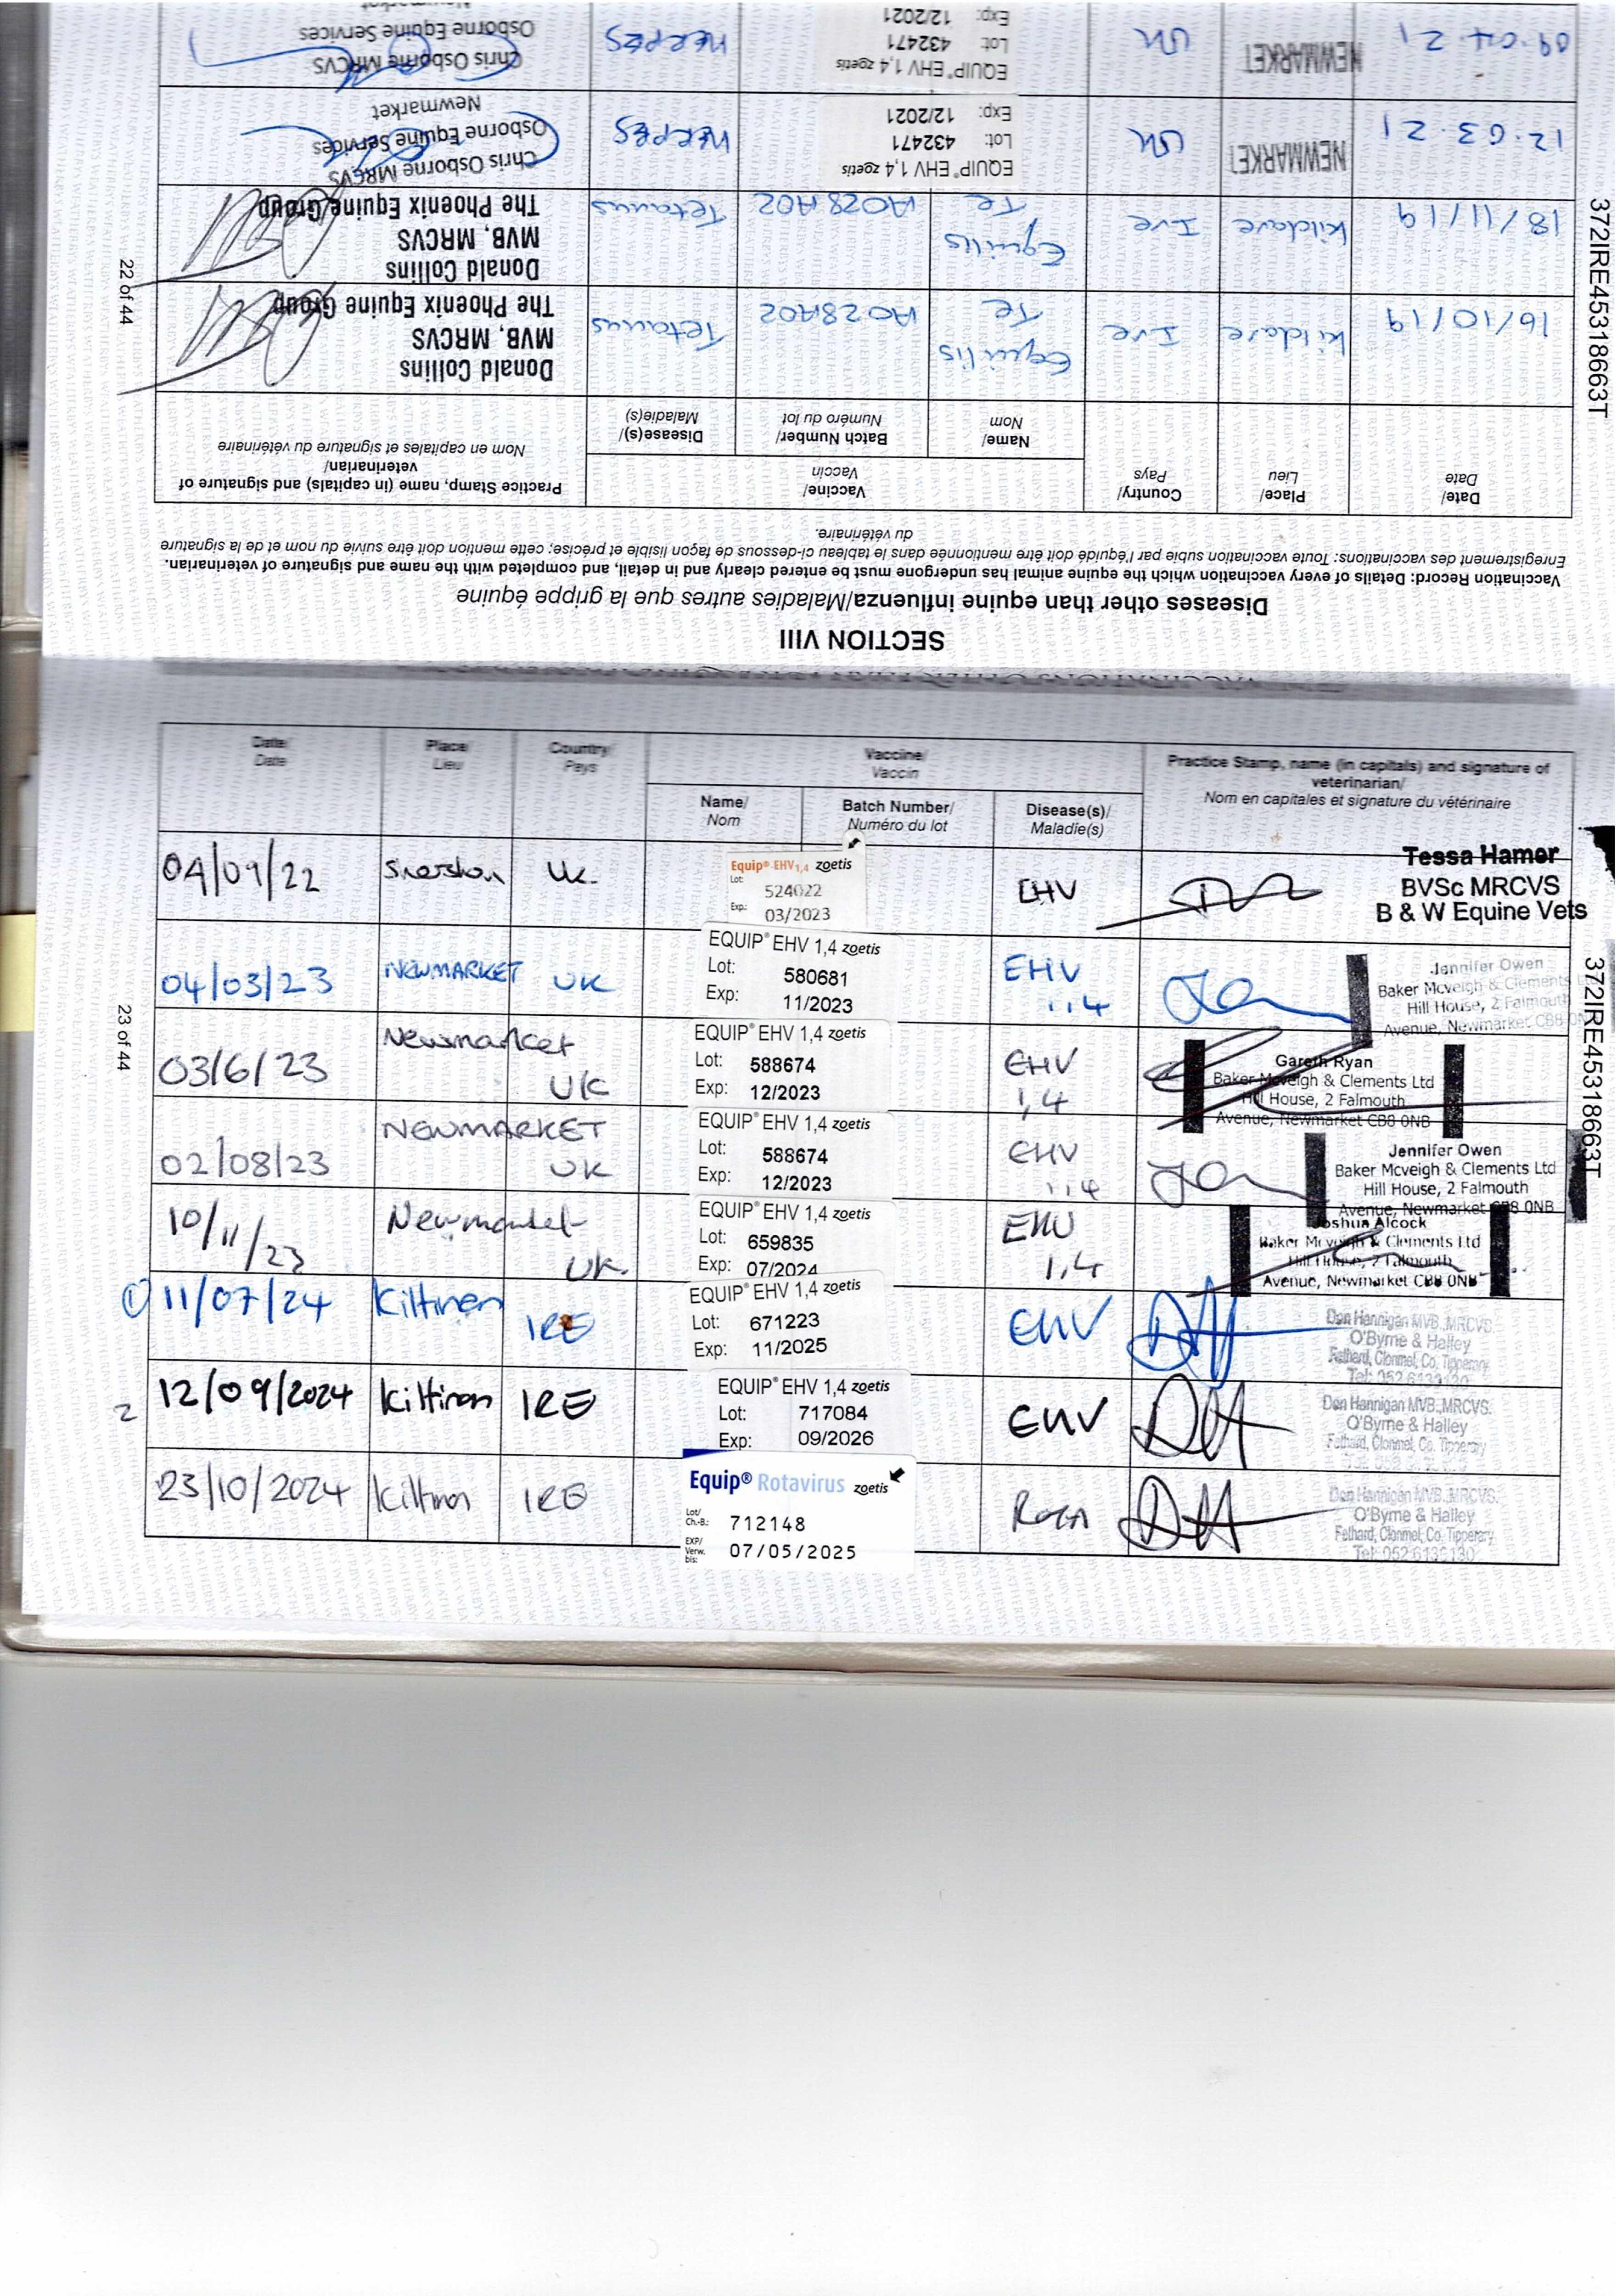 372IRE45318663T
22 of 44
SECTION VIII
Diseases other than equine influenza/Maladies autres que la grippe équine
Vaccination Record: Details of every vaccination which the equine animal has undergone must be entered clearly and in detail, and completed with the name and signature of veterinarian.
Enregistrement des vaccinations: Toute vaccination subie par l'équidé doit être mentionnée dans le tableau ci-dessous de façon lisible et précise; cette mention doit être suivie du nom et de la signature
du vétérinaire.
Date/ Date
Place/ Lieu
Country/ Pays
Vaccine/ Vaccin
Name/ Nom
Batch Number/ Numéro du lot
Disease(s)/ Maladie(s)
Practice Stamp, name (in capitals) and signature of
veterinarian/
Nom en capitales et signature du vétérinaire
16/10/19 Kildare Ire Equilis Te A028A02 Tetanus
Donald Collins
MVB, MRCVS
The Phoenix Equine Group
18/11/19 Kildare Ire Equilis Te A028A02 Tetanus
Donald Collins
MVB, MRCVS
The Phoenix Equine Group
12.03.21 NEWMARKET UK
EQUIP® EHV 1,4 zoetis
Lot: 432471
Exp: 12/2021
HERPES
Chris Osborne MRCVS
Osborne Equine Services
Newmarket
09.04.21 NEWMARKET UK
EQUIP® EHV 1,4 zoetis
Lot: 432471
Exp: 12/2021
HERPES
Chris Osborne MRCVS
Osborne Equine Services
372IRE45318663T
23 of 44
Date/ Date
Place/ Lieu
Country/ Pays
Vaccine/ Vaccin
Name/ Nom
Batch Number/ Numéro du lot
Disease(s)/ Maladie(s)
Practice Stamp, name (in capitals) and signature of
veterinarian/
Nom en capitales et signature du vétérinaire
04/09/22 UK.
Equip® EHV1,4 zoetis
Lot: 524022
Exp: 03/2023
EHV
Tessa Hamer
BVSc MRCVS
B & W Equine Vets
04/03/23 NEWMARKET UK
EQUIP® EHV 1,4 zoetis
Lot: 580681
Exp: 11/2023
EHV 1,4
Jennifer Owen
Baker Mcveigh & Clements
Hill House, 2 Falmouth
Avenue, Newmarket CB8 0NB
03/6/23 Newmarket UK
EQUIP® EHV 1,4 zoetis
Lot: 588674
Exp: 12/2023
EHV 1,4
Gareth Ryan
Baker Mcveigh & Clements Ltd
Hill House, 2 Falmouth
Avenue, Newmarket CB8 0NB
02/08/23 NEWMARKET UK
EQUIP® EHV 1,4 zoetis
Lot: 588674
Exp: 12/2023
EHV 1,4
Jennifer Owen
Baker Mcveigh & Clements Ltd
Hill House, 2 Falmouth
Avenue, Newmarket CB8 0NB
10/11/23 Newmarket UK.
EQUIP® EHV 1,4 zoetis
Lot: 659835
Exp: 07/2024
EHV 1,4
Joshua Alcock
Baker Mcveigh & Clements Ltd
Hill House, 2 Falmouth
Avenue, Newmarket CB8 0NB
① 11/07/24 Kiltinan IRE
EQUIP® EHV 1,4 zoetis
Lot: 671223
Exp: 11/2025
EHV
Dan Hannigan MVB.,MRCVS.
O'Byrne & Halley
Fethard, Clonmel, Co. Tipperary
Tel: 052 6132130
2 12/09/2024 Kiltinan IRE
EQUIP® EHV 1,4 zoetis
Lot: 717084
Exp: 09/2026
EHV
Dan Hannigan MVB.,MRCVS.
O'Byrne & Halley
Fethard, Clonmel, Co. Tipperary
23/10/2024 Kiltinan IRE
Equip® Rotavirus zoetis
Lot/ Ch.-B.: 712148
EXP/ Verw. bis: 07/05/2025
Rota
Dan Hannigan MVB.,MRCVS.
O'Byrne & Halley
Fethard, Clonmel, Co. Tipperary
Tel: 052 6132130